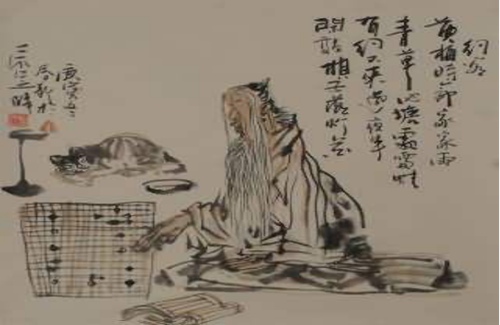 约客
黄梅时节家家雨
青草池塘處處蛙
有约不来过夜半
闲敲棋子落灯花
庚寅冬